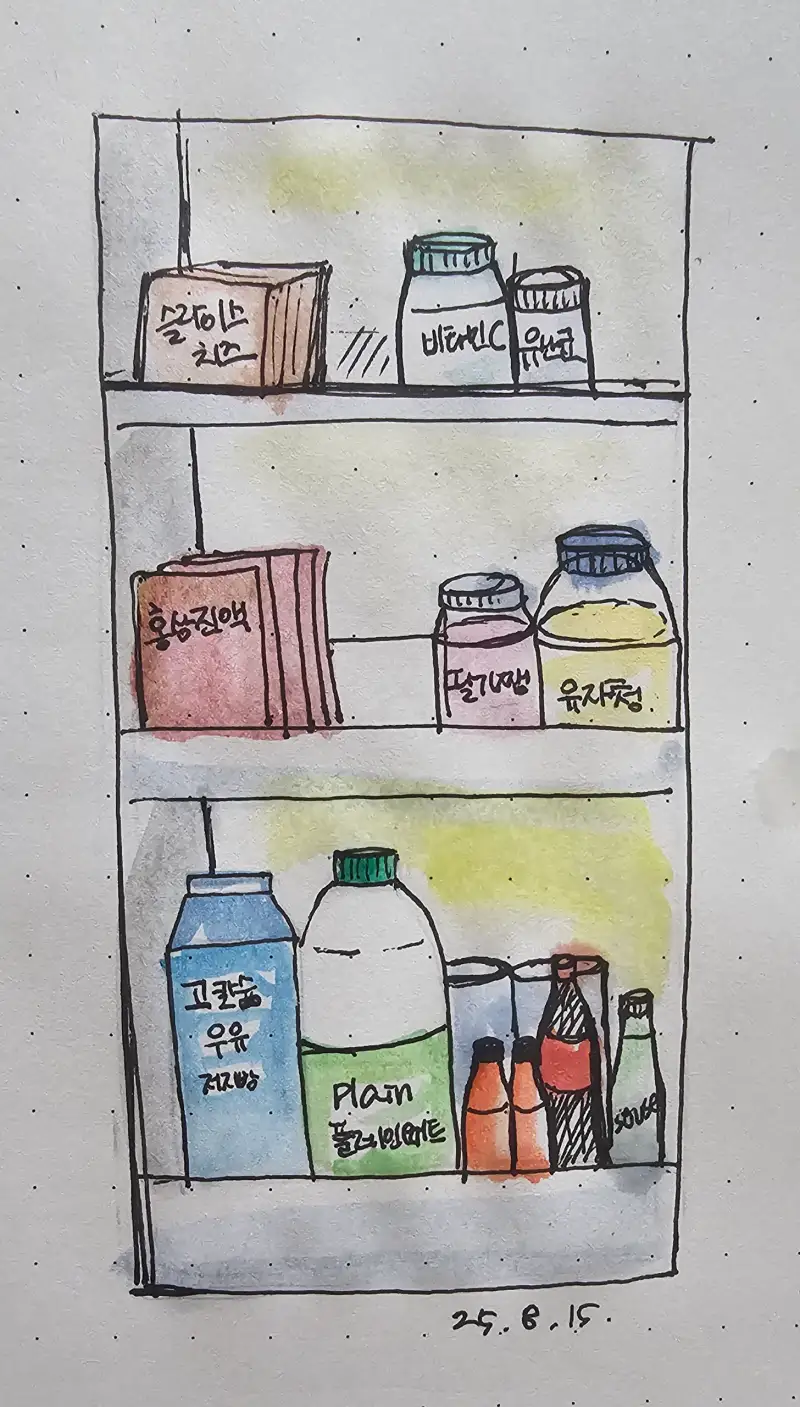 슬라이스
치즈
비타민C
유산균
홍삼진액
딸기쨈
유자청
고칼슘
우유
저지방
Plain
플레인요거트
souse
25.8.15.